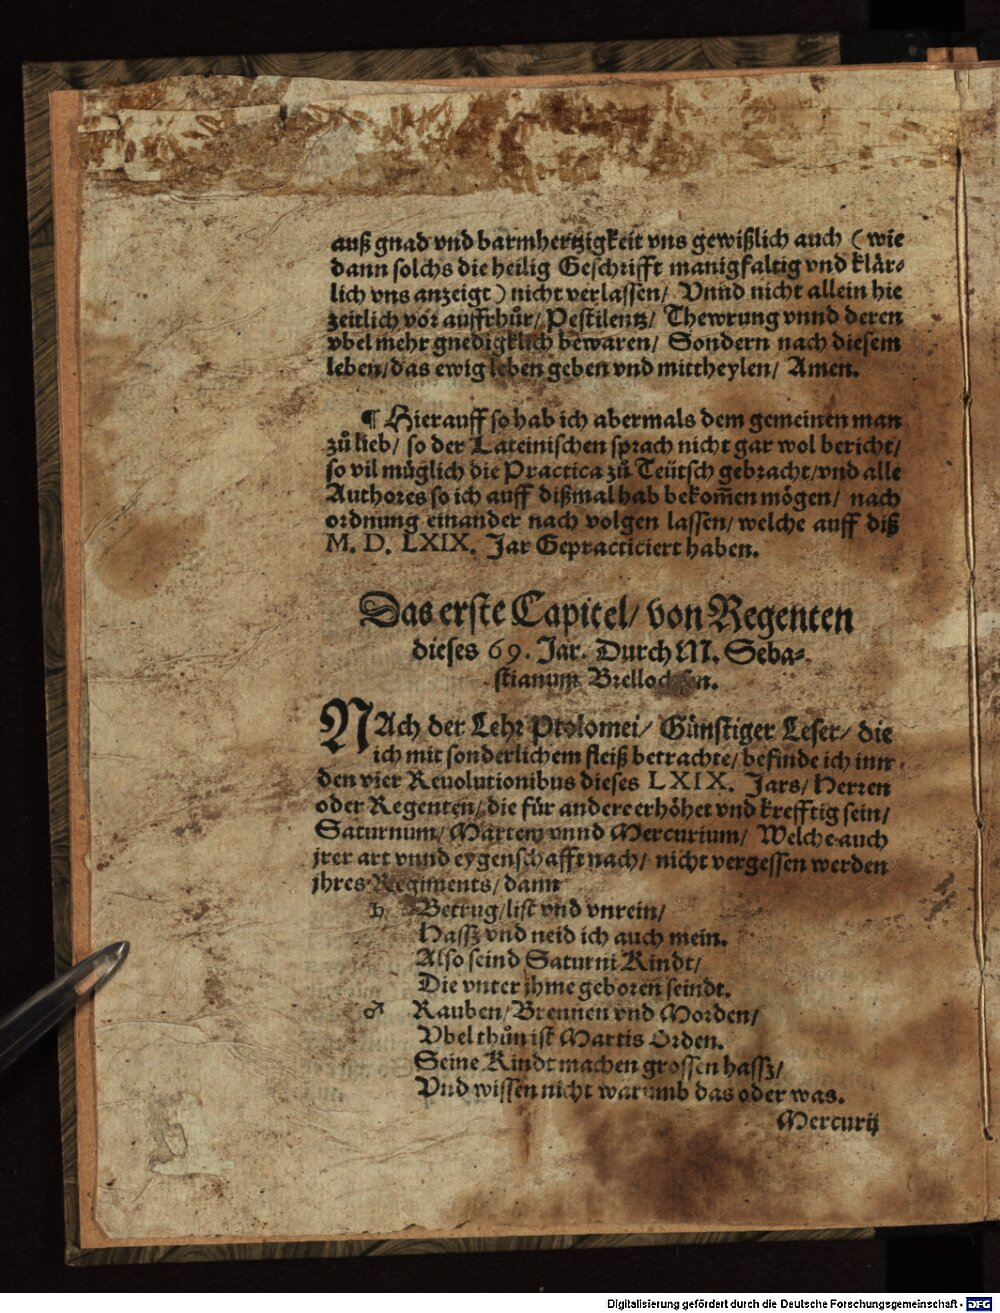 auß gnad vnd barmhertzigkeit vns gewißlich auch ( wie
dann solchs die heilig Geschrifft manigfaltig vnd klär⸗
lich vns anzeigt ) nicht verlassen/ Vnnd nicht allein hie
zeitlich vor auffrhůr/ Pestilentz/ Thewrung vnnd deren
vbel mehr gnedigklich bewaren/ Sondern nach diesem
leben/ das ewig leben geben vnd mittheylen/ Amen.
¶ Hierauff so hab ich abermals dem gemeinen man
zů lieb/ so der Lateinischen sprach nicht gar wol bericht/
so vil müglich die Practica zů Teütsch gebracht/ vnd alle
Authores so ich auff dißmal hab bekom̄en mögen/ nach
ordnung einander nach volgen lassen/ welche auff diß
M. D. LXIX. Jar Gepracticiert haben.
Das erste Capitel/ von Regenten
dieses 69. Jar. Durch M. Seba⸗
stianum
NAch der Lehr Ptolomei/ Günstiger Leser/ die
ich mit sonderlichem fleiß betrachte/ befinde ich inn
den vier Reuolutionibus dieses LXIX. Jars/ Herren
oder Regenten/ die für andere erhöhet vnd krefftig sein/
Saturnum/ Martem vnnd Mercurium/ Welche auch
jrer art vnnd eygenschafft nach/ nicht vergessen werden
jhres Regiments/ dann
♄ Betrug/ list vnd vnrein/
Hassz vnd neid ich auch mein.
Also seind Saturni Kindt/
Die vnter jhme geboren seindt.
♂ Rauben/ Brennen vnd Morden/
Vbel thůn ist Martis Orden.
Seine Kindt machen grossen hassz/
Vnd wissen nicht warumb das oder was.
Mercurij
Digitalisierung gefördert durch die Deutsche Forschungsgemeinschaft - DFG